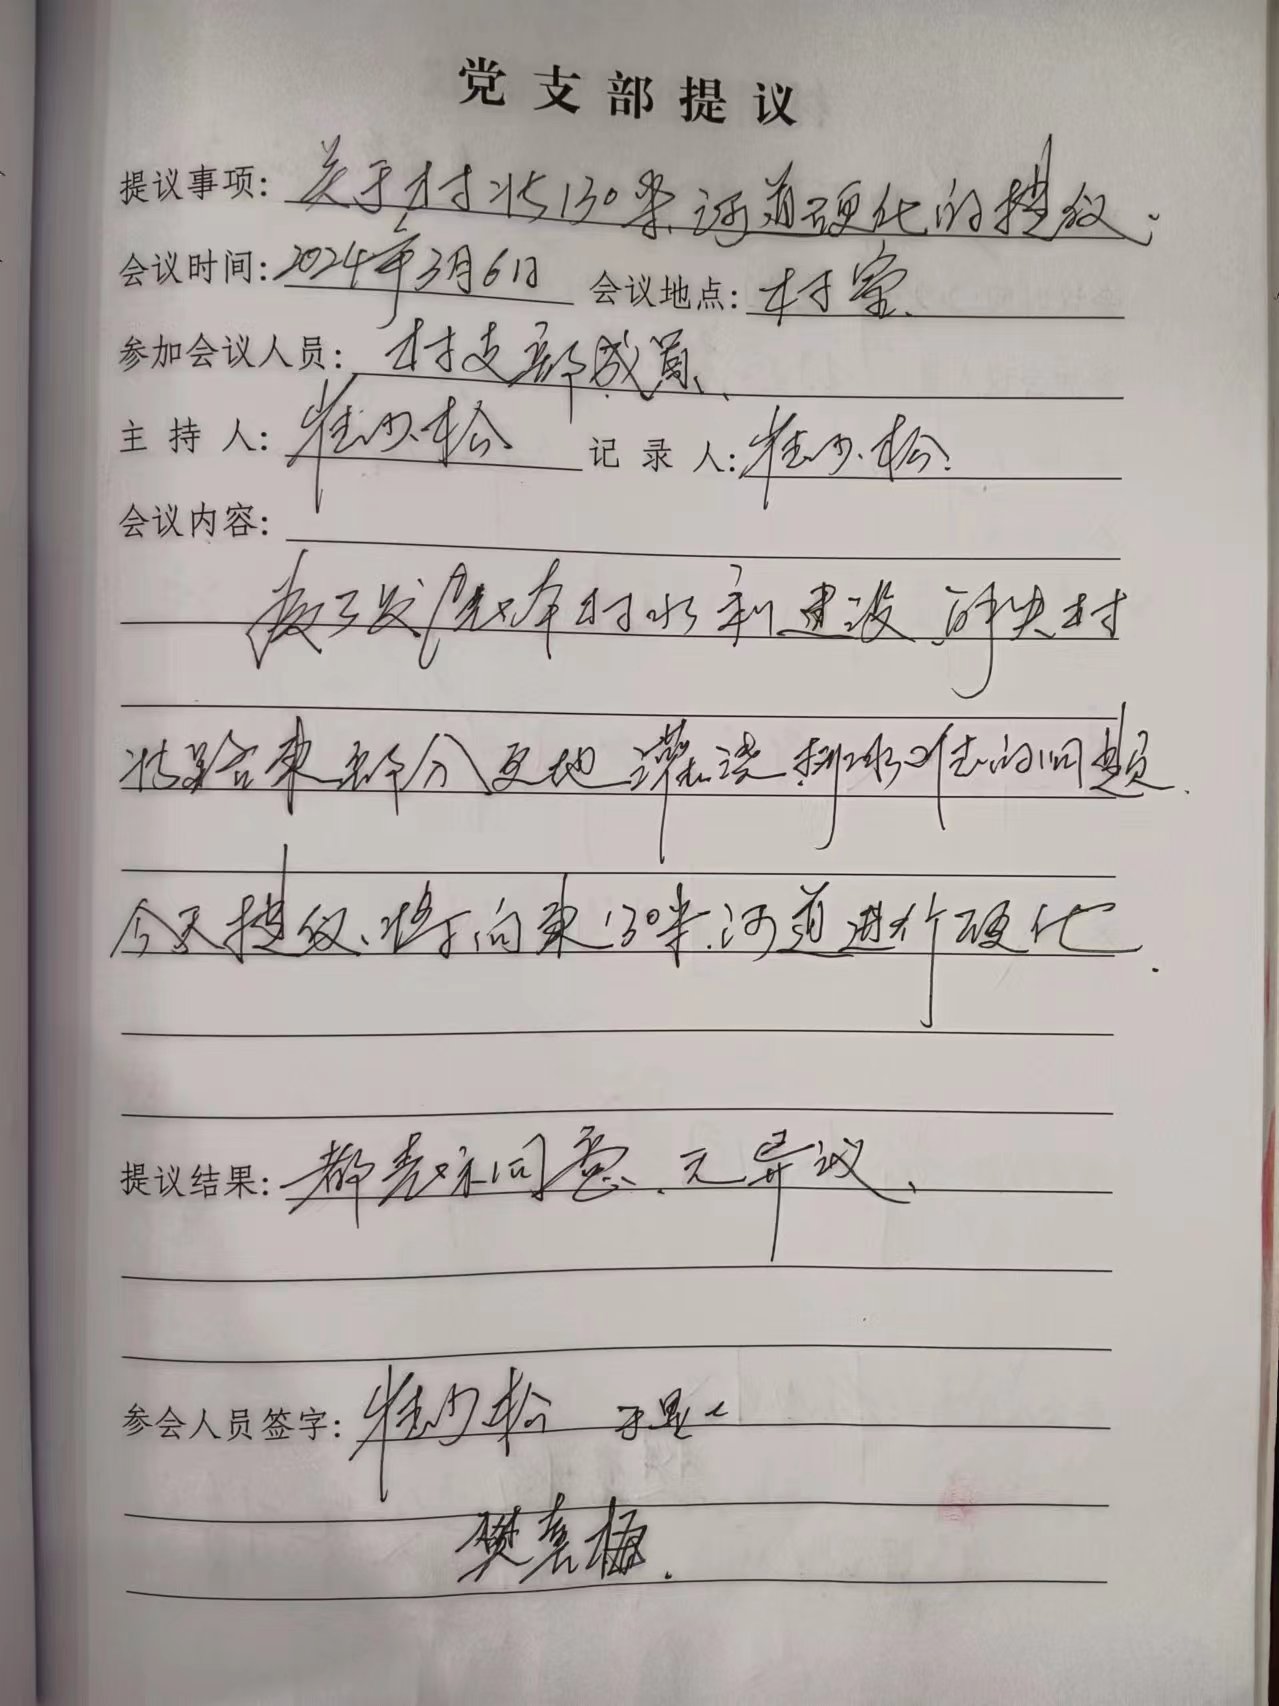 党支部提议
提议事项：关于村北130米河道硬化的提议.
会议时间：2024年3月6日 会议地点：村室.
参加会议人员：村支部成员.
主持人： 记录人：
会议内容：
为了发展本村水利建设 解决村
北路东部分麦地灌浇排水难的问题.
今天提议、将向东130米河道进行硬化.
提议结果：都表示同意.无异议.
参会人员签字：
樊喜梅.